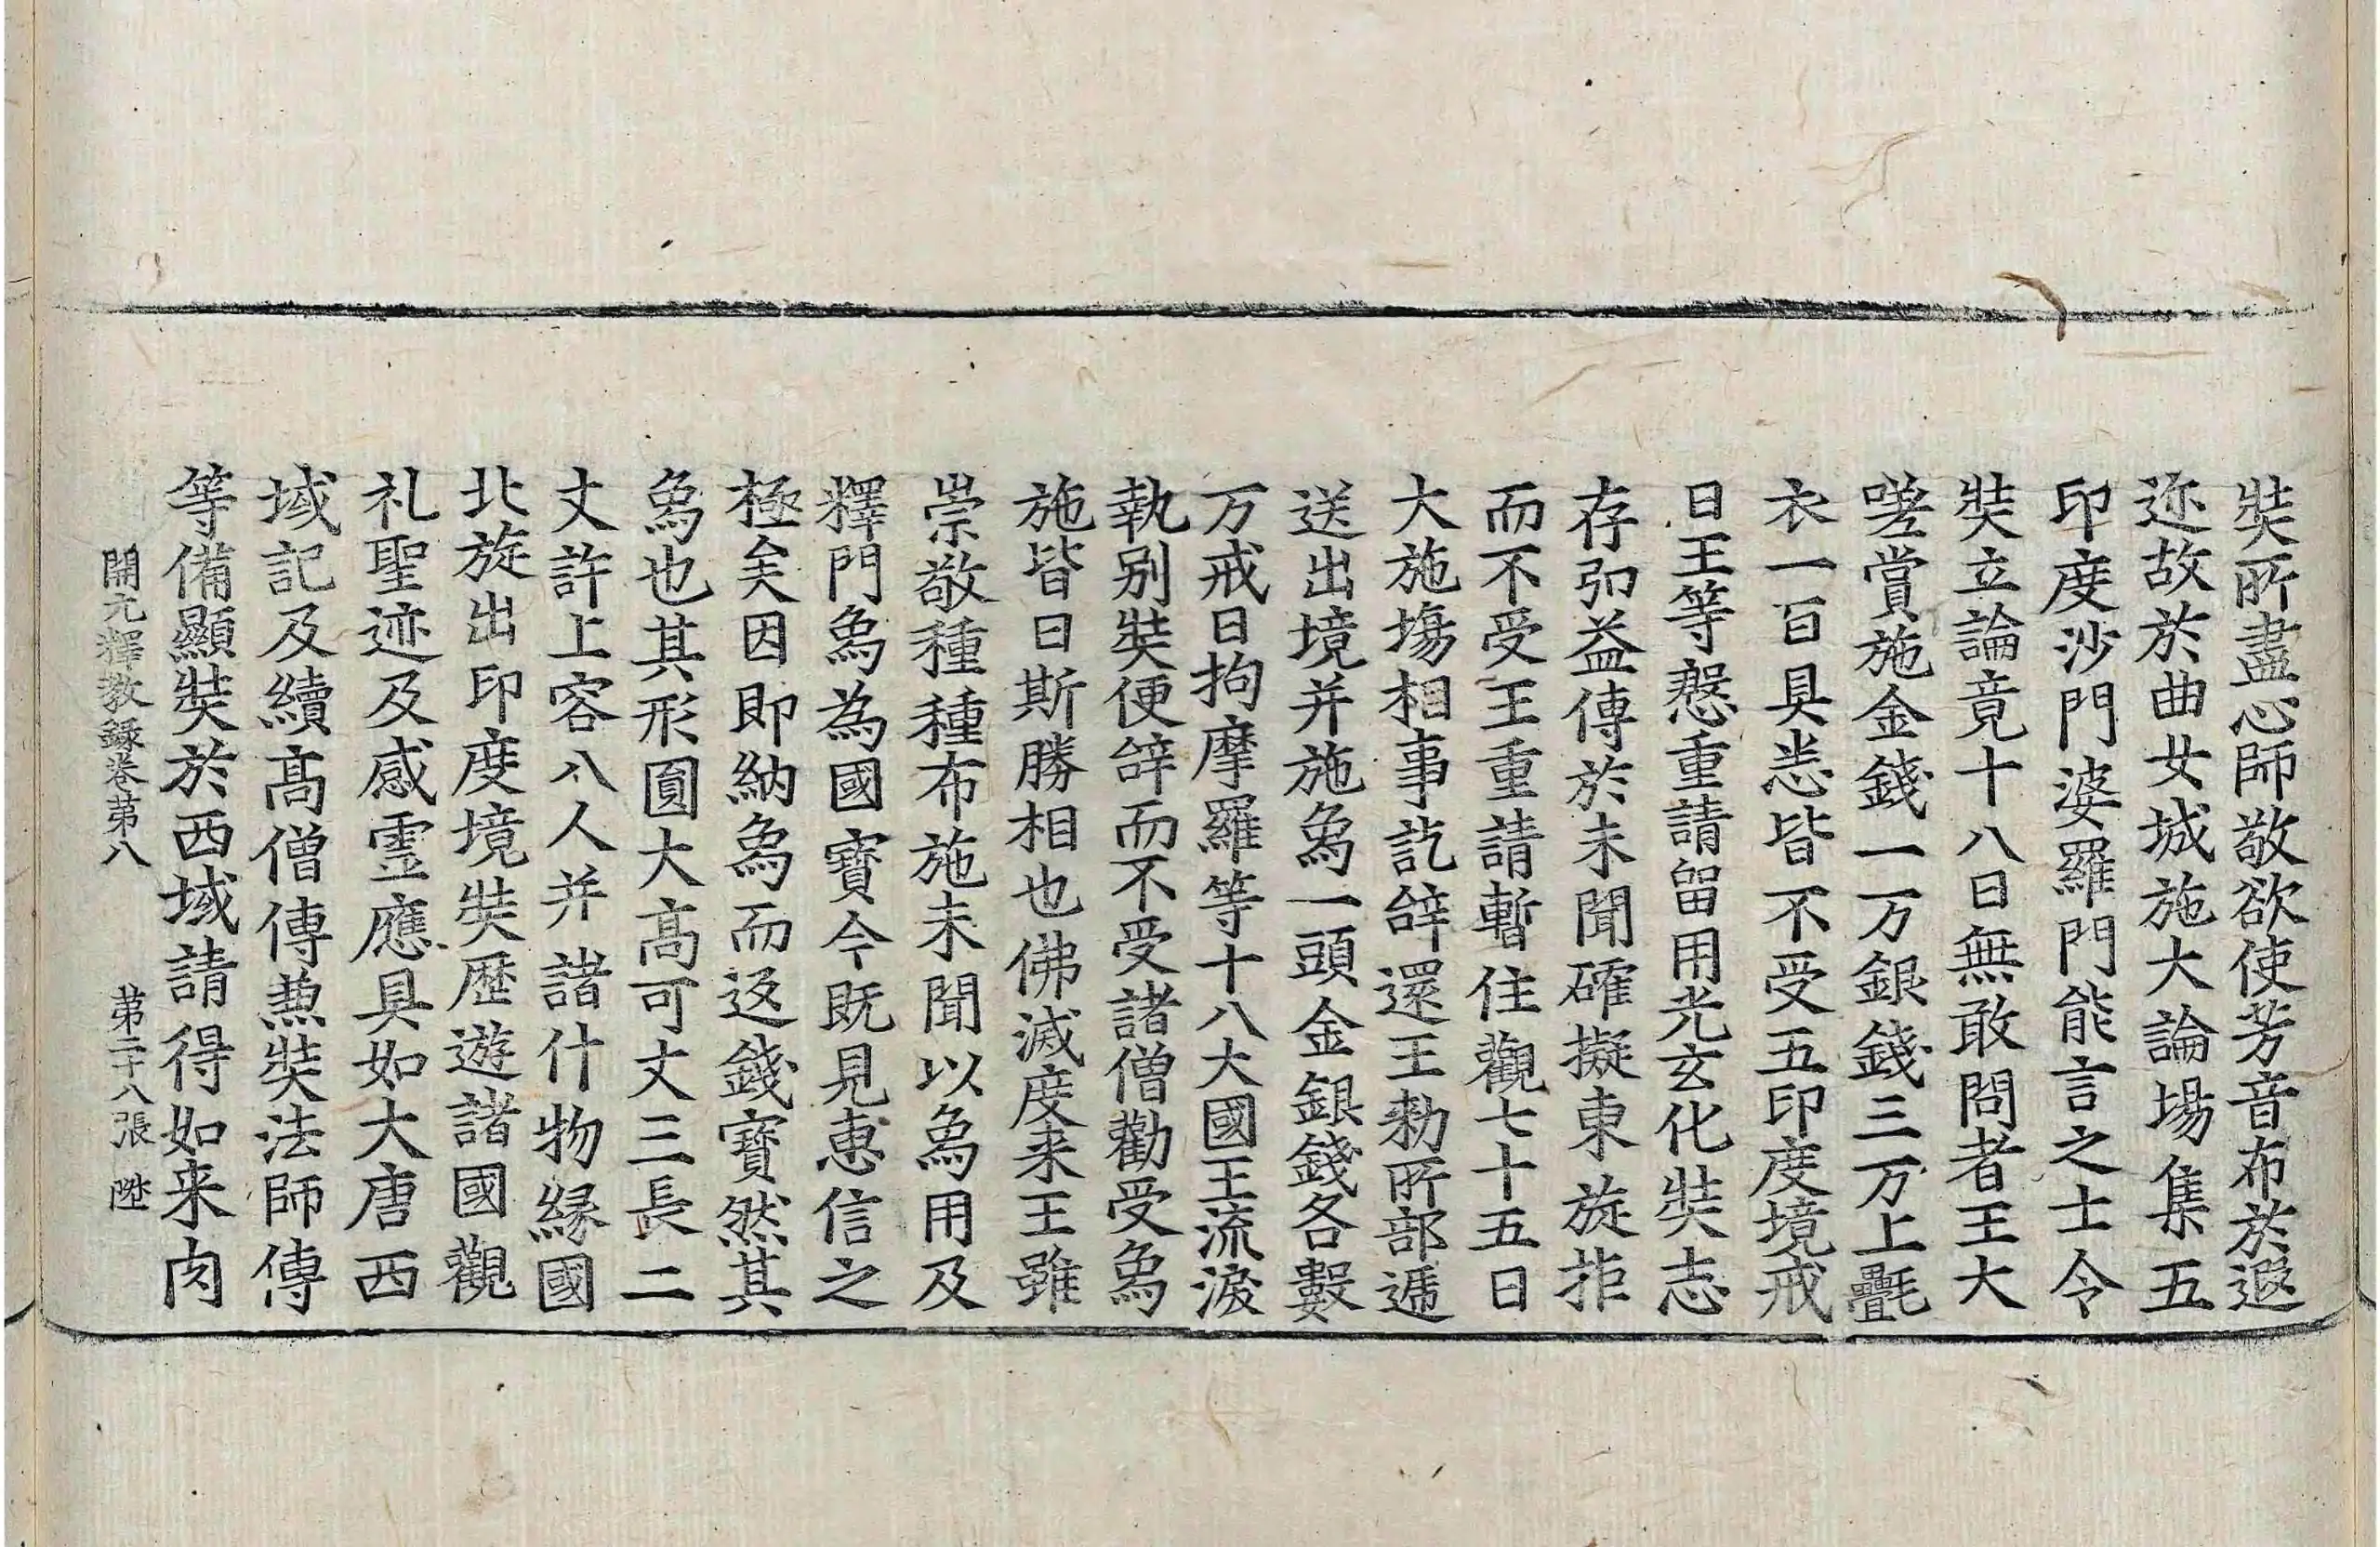 奘所盡心師敬欲使芳音布於遐
迩故於曲女城施大論場集五
印度沙門婆羅門能言之士令
奘立論竟十八日無敢問者王大
嗟賞施金錢一万銀錢三万上氎
衣一百具悉皆不受五印度境戒
日王等慇重請留用光玄化奘志
存弘益傳於未聞確擬東旋拒
而不受王重請暫住觀七十五日
大施場相事訖辝還王勑所部遞
送出境并施象一頭金銀錢各數
万戒日拘摩羅等十八大國王流淚
執别奘便辝而不受諸僧勸受象
施皆曰斯勝相也佛滅度来王雖
崇敬種種布施未聞以象用及
釋門象為國寶今既見惠信之
極矣因即納象而返錢寶然其
象也其形圓大高可丈三長二
丈許上容八人并諸什物緣國
北旋出印度境奘歷遊諸國觀
礼聖迹及感霊應具如大唐西
域記及續高僧傳兼奘法師傳
等備顯奘於西域請得如来肉
開元釋教録卷第八 第二十八張 陞